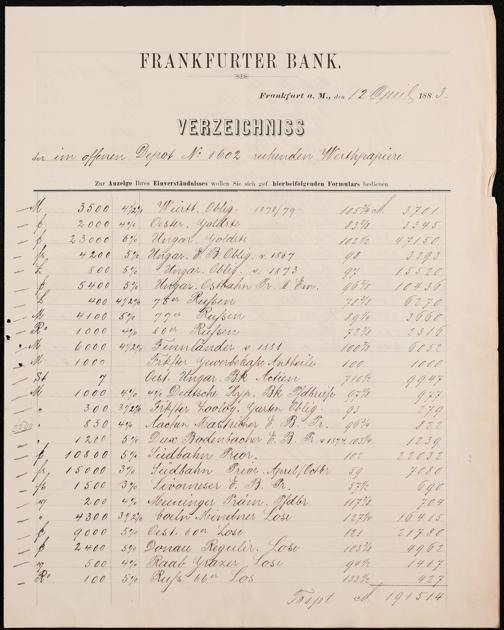 FRANKFURTER BANK.
Frankfurt a. M., den 12 April 1883.
VERZEICHNISS
der im offenen Depot No 1602 ruhenden Werthpapiere
Zur Anzeige Ihres Einverständnisses wollen Sie sich gef. hierbeifolgenden Formulars bedienen.
M 3500 4½% Württ. Oblig. 1878/79 M 3701
f 2000 4% Oester. Goldrte 3345
f 23000 6% Ungar. Goldrte 47150
4200 5% Ungar. E. B. Oblig. v. 1867 98 3293
£ 800 5% Ungar. Oblig. v. 1873 97 15520
f 5400 5% Ungar. Ostbahn Pr. 10436
£ 400 4½% 75er Rußen 6270
M 4100 5% 77er Rußen 3660
Ro 1000 4% 80er Rußen 2316
M 6000 4½% Finnländer v. 1881 6052
M 1000 Frkfter Gewerbekaße Antheile 100 1000
St 7 Oest. Ungar. Bk Actien 9947
M 1000 4% Deutsche Hyp. Bk Pfdbriefe 977
" 300 3½% Frkfter Zoolog. Garten Oblig. 93 279
" 850 4% Aachen Mastricher E. B. Pr. 822
" 1200 5% Dux Bodenbacher E. B. Pr. 1239
f 10800 5% Südbahn Prior. 102 22032
15000 3% Südbahn Prior. April/Octbr 59 7080
1500 3% Livorneser E. B. Pr. 690
200 4% Meininger Präm. Pfdbr 704
" 4300 3½% Coeln Mindner Lose 16415
f 9000 5% Oest. 60er Lose 121 21780
f 2400 5% Donau Regulir. Lose 4962
500 4% Raab Grazer Lose 1417
Ro 100 5% Ruß. 66er Los 427
M 191514